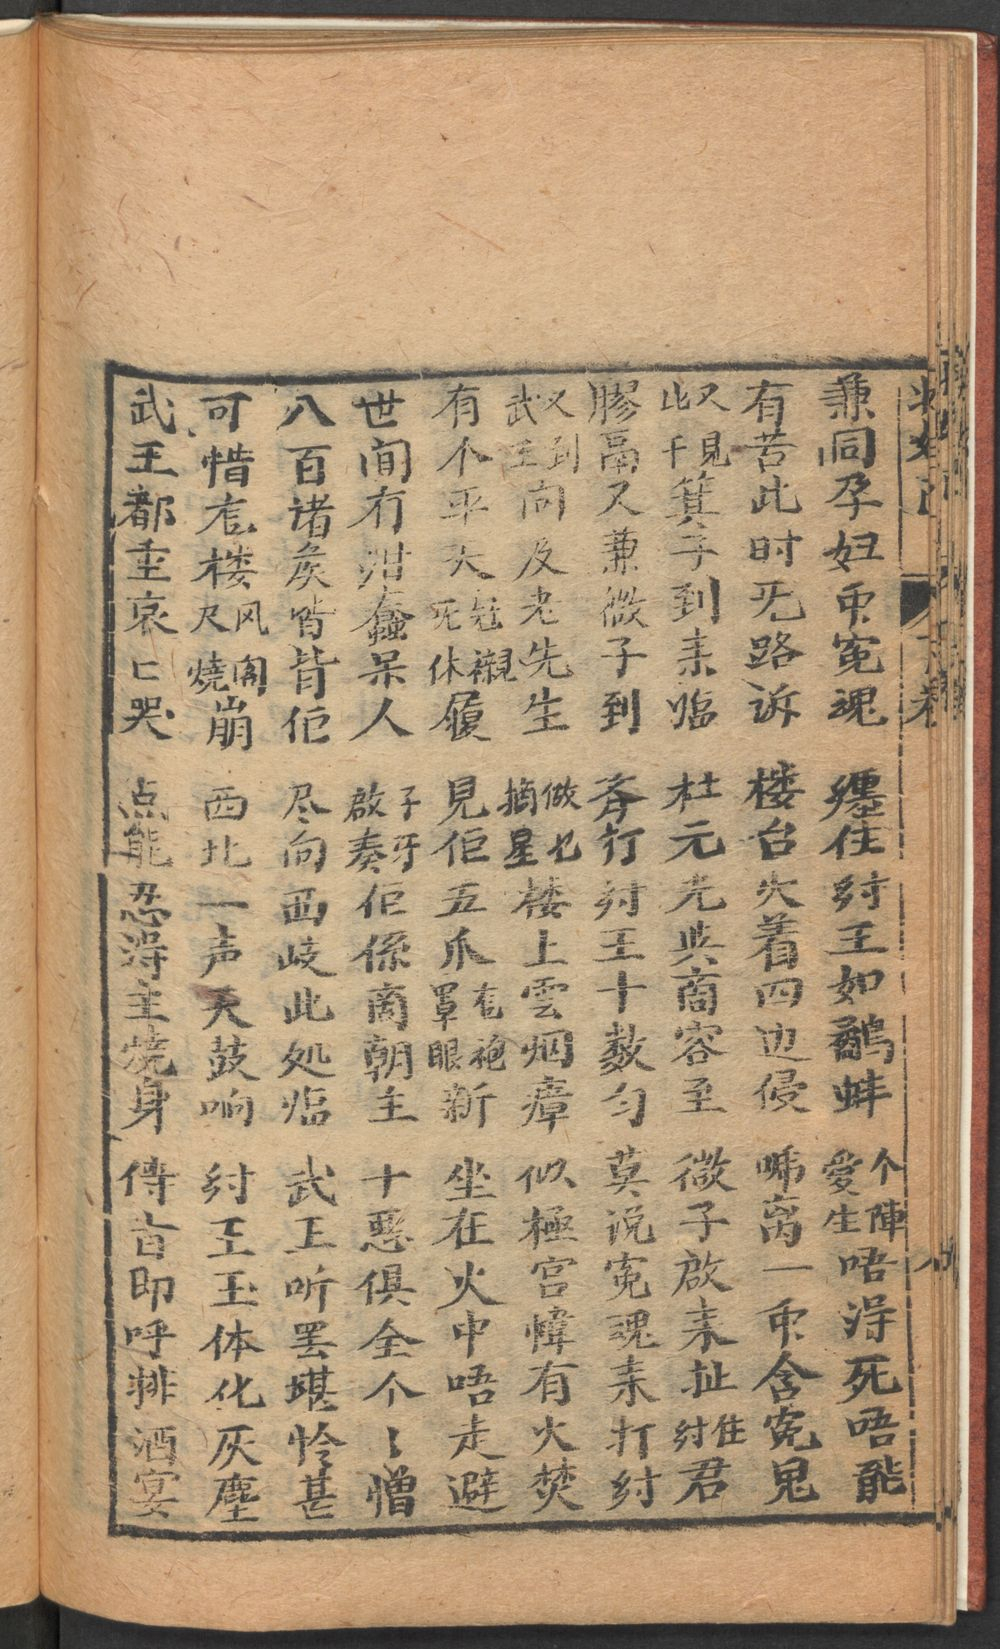 兼同孕妇一帀冤魂 纒住紂王如鷸蚌 个陣愛生唔淂死唔能
有苦此时旡路诉 楼台火着四边侵 啼离一帀含寃鬼
又見比干箕子到来临 杜元光共商容至 微子啟来扯住紂君
膠鬲又兼微子到 斉打紂王十数匀 莫说寃魂来打紂
又到武王向及老先生 做乜摘星楼上雲烟瘴 似極宫幃有火焚
有个平天冠旡襯休履 見佢五爪有袍罩眼新 坐在火中唔走避
世间冇咁蠢呆人 子牙啟奏佢係商朝主 十惡俱全个〻憎
八百诸矦皆背佢 尽向西岐此处临 武王听罢堪怜甚
可惜座楼风阁尺燒崩 西北一声天鼓响 紂王玉体化灰塵
武王都重哀匕哭 点能忍淂主燒身 侍旨即呼排酒宴